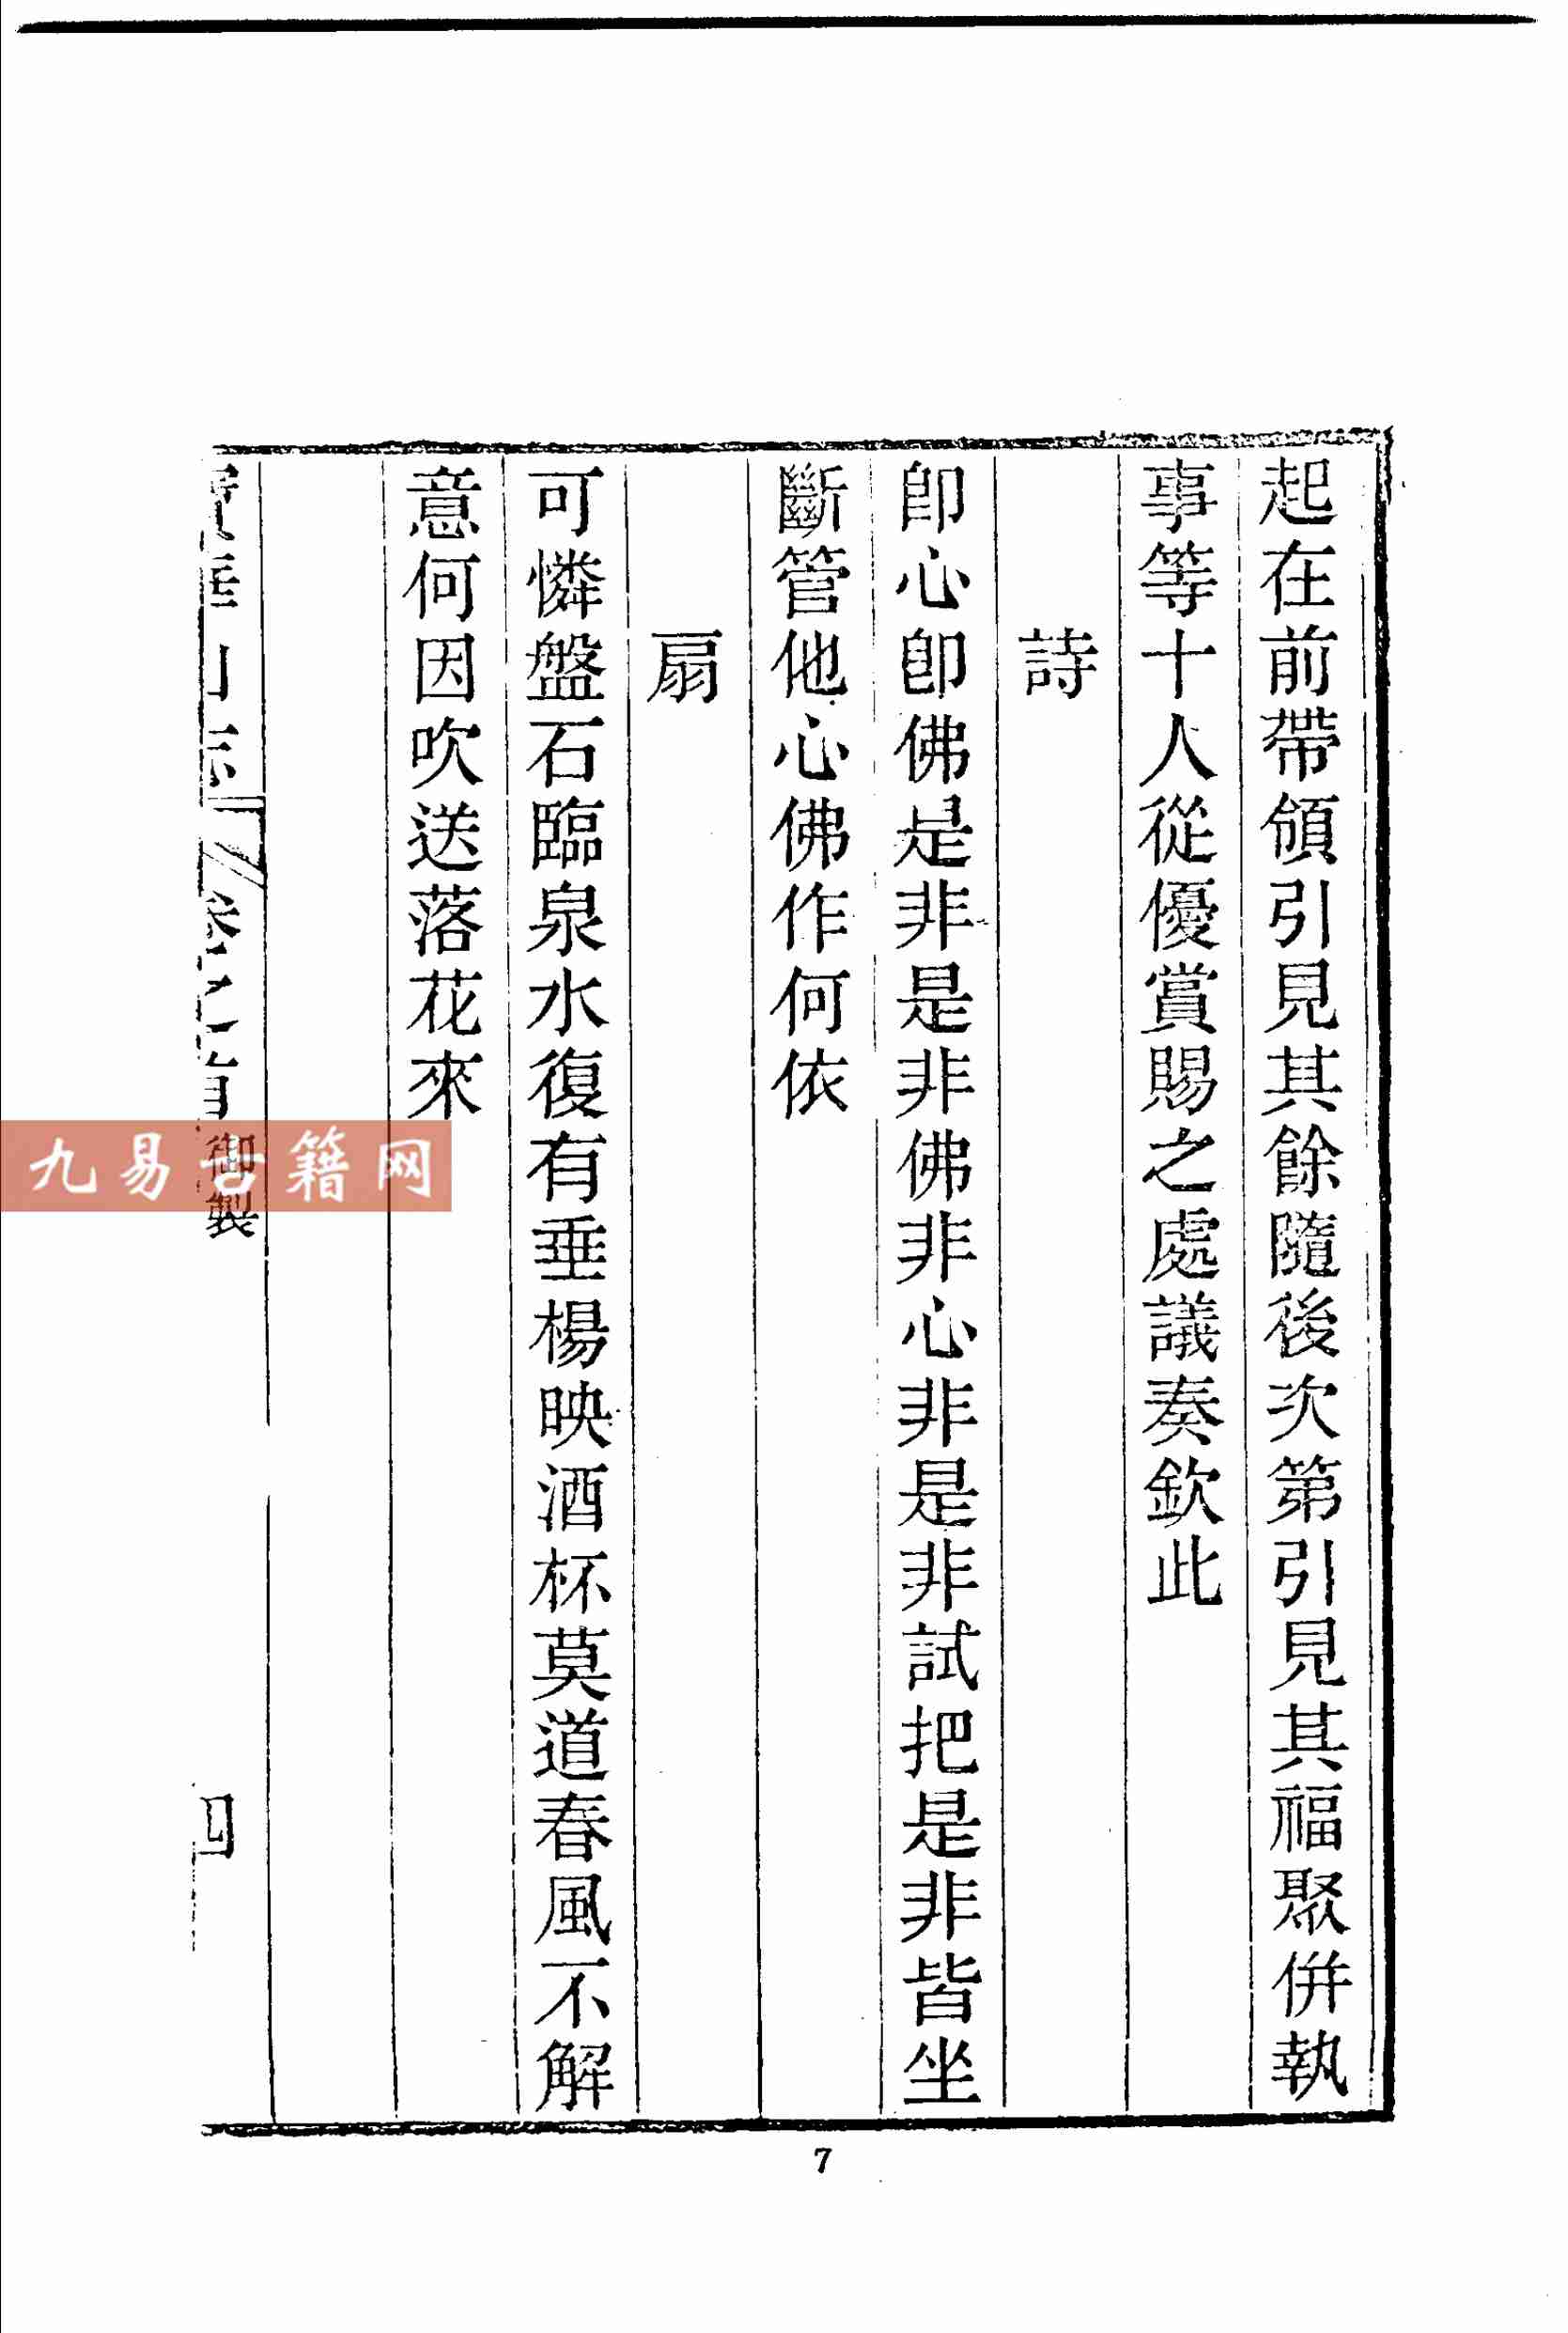 起在前帶領引見其餘隨後次第引見其福聚併執
事等十人從優賞賜之處議奏欽此
詩
卽心卽佛是非是非佛非心非是非試把是非皆坐
斷管他心佛作何依
扇
可憐盤石臨泉水復有垂楊映酒杯莫道春風不解
意何因吹送落花來
寶華山志 卷之首 御製 四
九易古籍网
7